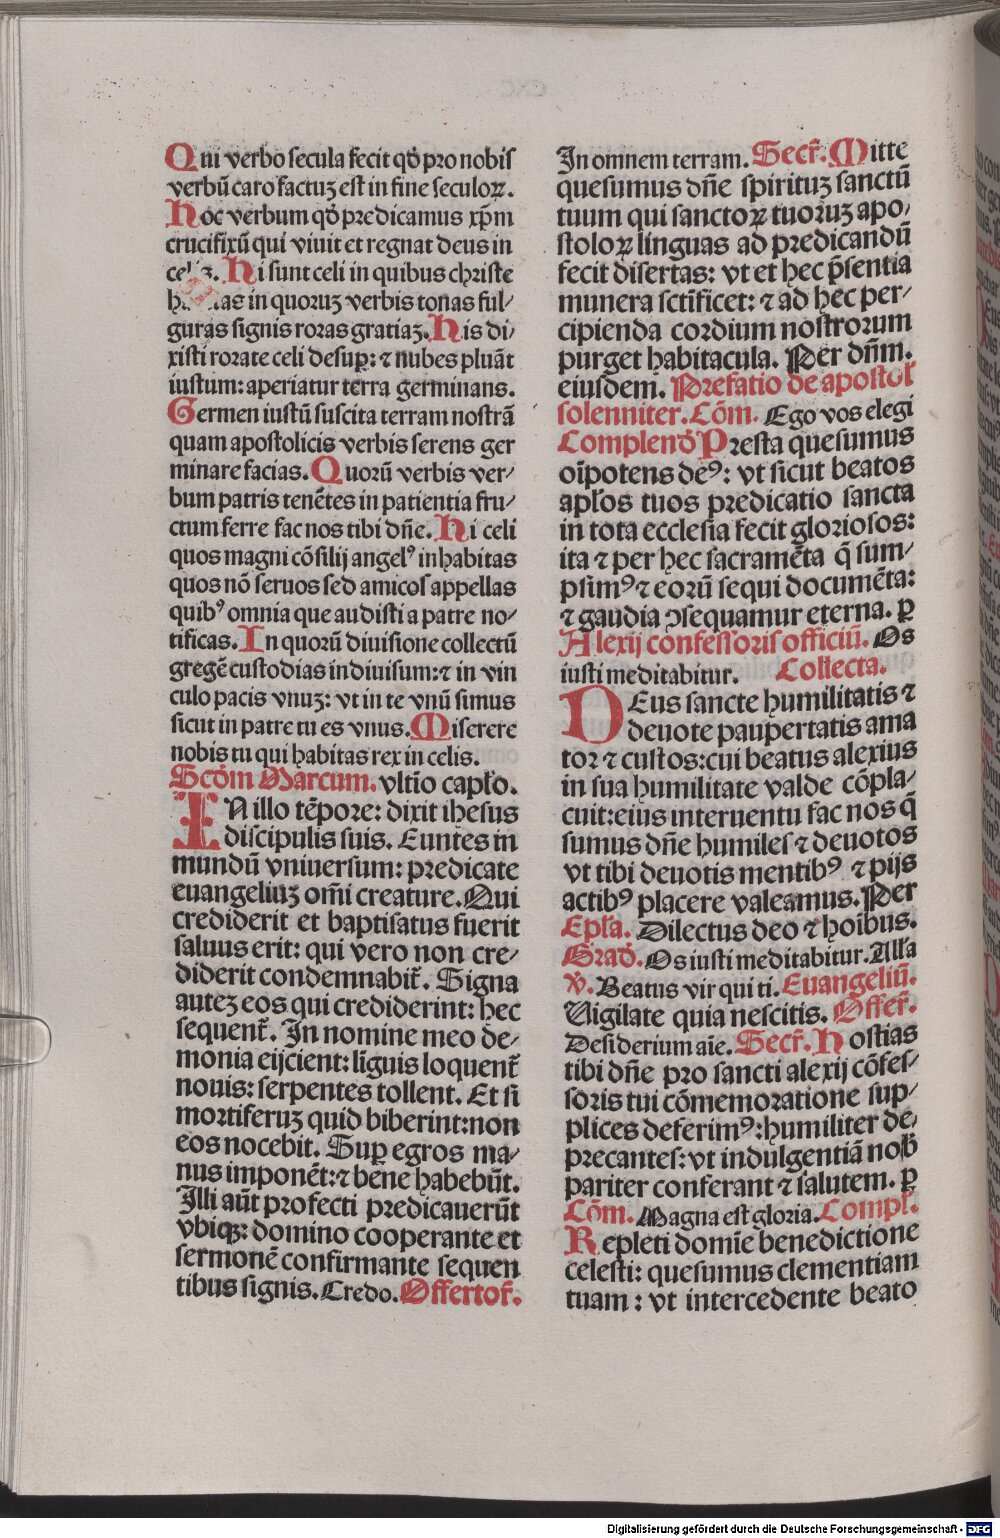 Qui verbo secula fecit qď pro nobis
verbū caro factuʒ est in fine seculoꝝ.
Hoc verbum qď predicamus xp̄m
crucifixū qui viuit et regnat deus in
Hi sunt celi in quibus christe
in quoruʒ verbis tonas ful⸗
guras signis roras gratiaʒ. His di⸗
xisti rorate celi desuꝑ: ⁊ nubes pluāt
iustum: aperiatur terra germinans.
Germen iustū suscita terram nostrā
quam apostolicis verbis serens ger
minare facias. Quorū verbis ver⸗
bum patris tenētes in patientia fru⸗
ctum ferre fac nos tibi dn̄e. Hi celi
quos magni cōsilij angelꝰ inhabitas
quos nō seruos sed amicos appellas
quibꝰ omnia que audisti a patre no⸗
tificas. In quorū diuisione collectū
gregē custodias indiuisum: ⁊ in vin
culo pacis vnuʒ: vt in te vnū simus
sicut in patre tu es vnus. Miserere
nobis tu qui habitas rex in celis.
Scďm Marcum. vltīo capło.
IN illo tēpore: dixit ihesus
discipulis suis. Euntes in
mundū vniuersum: predicate
euangeliuʒ om̄i creature. Qui
crediderit et baptisatus fuerit
saluus erit: qui vero non cre⸗
diderit condemnabit̄. Signa
auteʒ eos qui crediderint: hec
sequent̄. In nomine meo de⸗
monia eijcient: līguis loquent̄
nouis: serpentes tollent. Et si
mortiferuʒ quid biberint: non
eos nocebit. Suꝑ egros ma⸗
nus imponēt: ⁊ bene habebūt.
Illi aūt profecti predicauerūt
vbiqʒ: domino cooperante et
sermonē confirmante sequen
tibus signis. Credo. Offertoꝛ̄.
In omnem terram. Secr̄. Mitte
quesumus dn̄e spirituʒ sanctū
tuum qui sanctoꝝ tuoruʒ apo⸗
stoloꝝ linguas ad predicandū
fecit disertas: vt et hec p̄sentia
munera sctīficet: ⁊ ad hec per⸗
cipienda cordium nostrorum
purget habitacula. Per dn̄m.
eiusdem. Prefatio de apostoł
solenniter. Cōm. Ego vos elegi
Complenď Presta quesumus
oīpotens deꝰ: vt sicut beatos
apłos tuos predicatio sancta
in tota ecclesia fecit gloriosos:
ita ⁊ per hec sacramēta q̄ sum⸗
psimꝰ ⁊ eorū sequi documēta:
⁊ gaudia ꝯsequamur eterna. ꝑ
Alexij confessoris officiū. Os
iusti meditabitur. Collecta.
DEus sancte humilitatis ⁊
deuote paupertatis ama
tor ⁊ custos: cui beatus alexius
in sua humilitate valde cōpla⸗
cuit: eius interuentu fac nos q̄
sumus dn̄e humiles ⁊ deuotos
vt tibi deuotis mentibꝰ ⁊ pijs
actibꝰ placere valeamus. Per
Epła. Dilectus deo ⁊ hoībus.
Graď. Os iusti meditabitur. Alla
℣. Beatus vir qui ti. Euangeliū.
Vigilate quia nescitis. Offer̄.
Desiderium aīe. Secr̄. Hostias
tibi dn̄e pro sancti alexij cōfes⸗
soris tui cōmemoratione sup⸗
plices deferimꝰ: humiliter de⸗
precantes: vt indulgentiā nob̄
pariter conferant ⁊ salutem. ꝑ
Cōm. Magna est gloria. Compł.
Repleti domīe benedictione
celesti: quesumus clementiam
tuam: vt intercedente beato
Digitalisierung gefördert durch die Deutsche Forschungsgemeinschaft - DFG